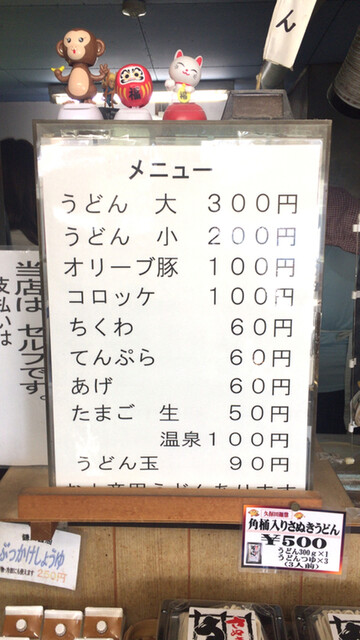 ん
福
メニュー
うどん 大 300円
うどん 小 200円
オリーブ豚 100円
コロッケ 100円
ちくわ 60円
てんぷら 60円
あげ 60円
たまご 生 50円
温泉 100円
うどん玉 90円
お土産用うどんあります
当店は セルフです。
支払いは
ぶっかけしょうゆ
250円
久保田麺業
角桶入りさぬきうどん
¥500
うどん300g×1
うどんつゆ×3
(3人前)